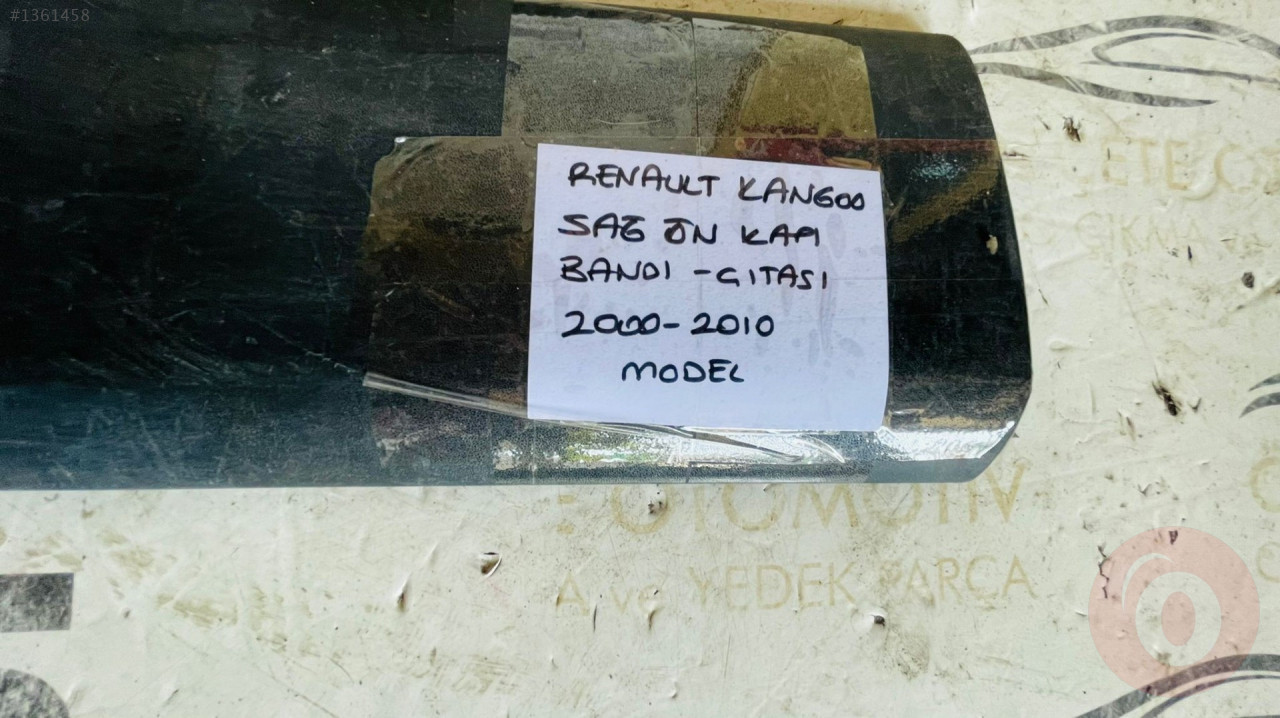 #1361458
RENAULT KANGOO
SAĞ ÖN KAPI
BANDI - GITASI
2000-2010
MODEL
OTOMOTİV
YEDEK PARÇA
ÇIKMA ve